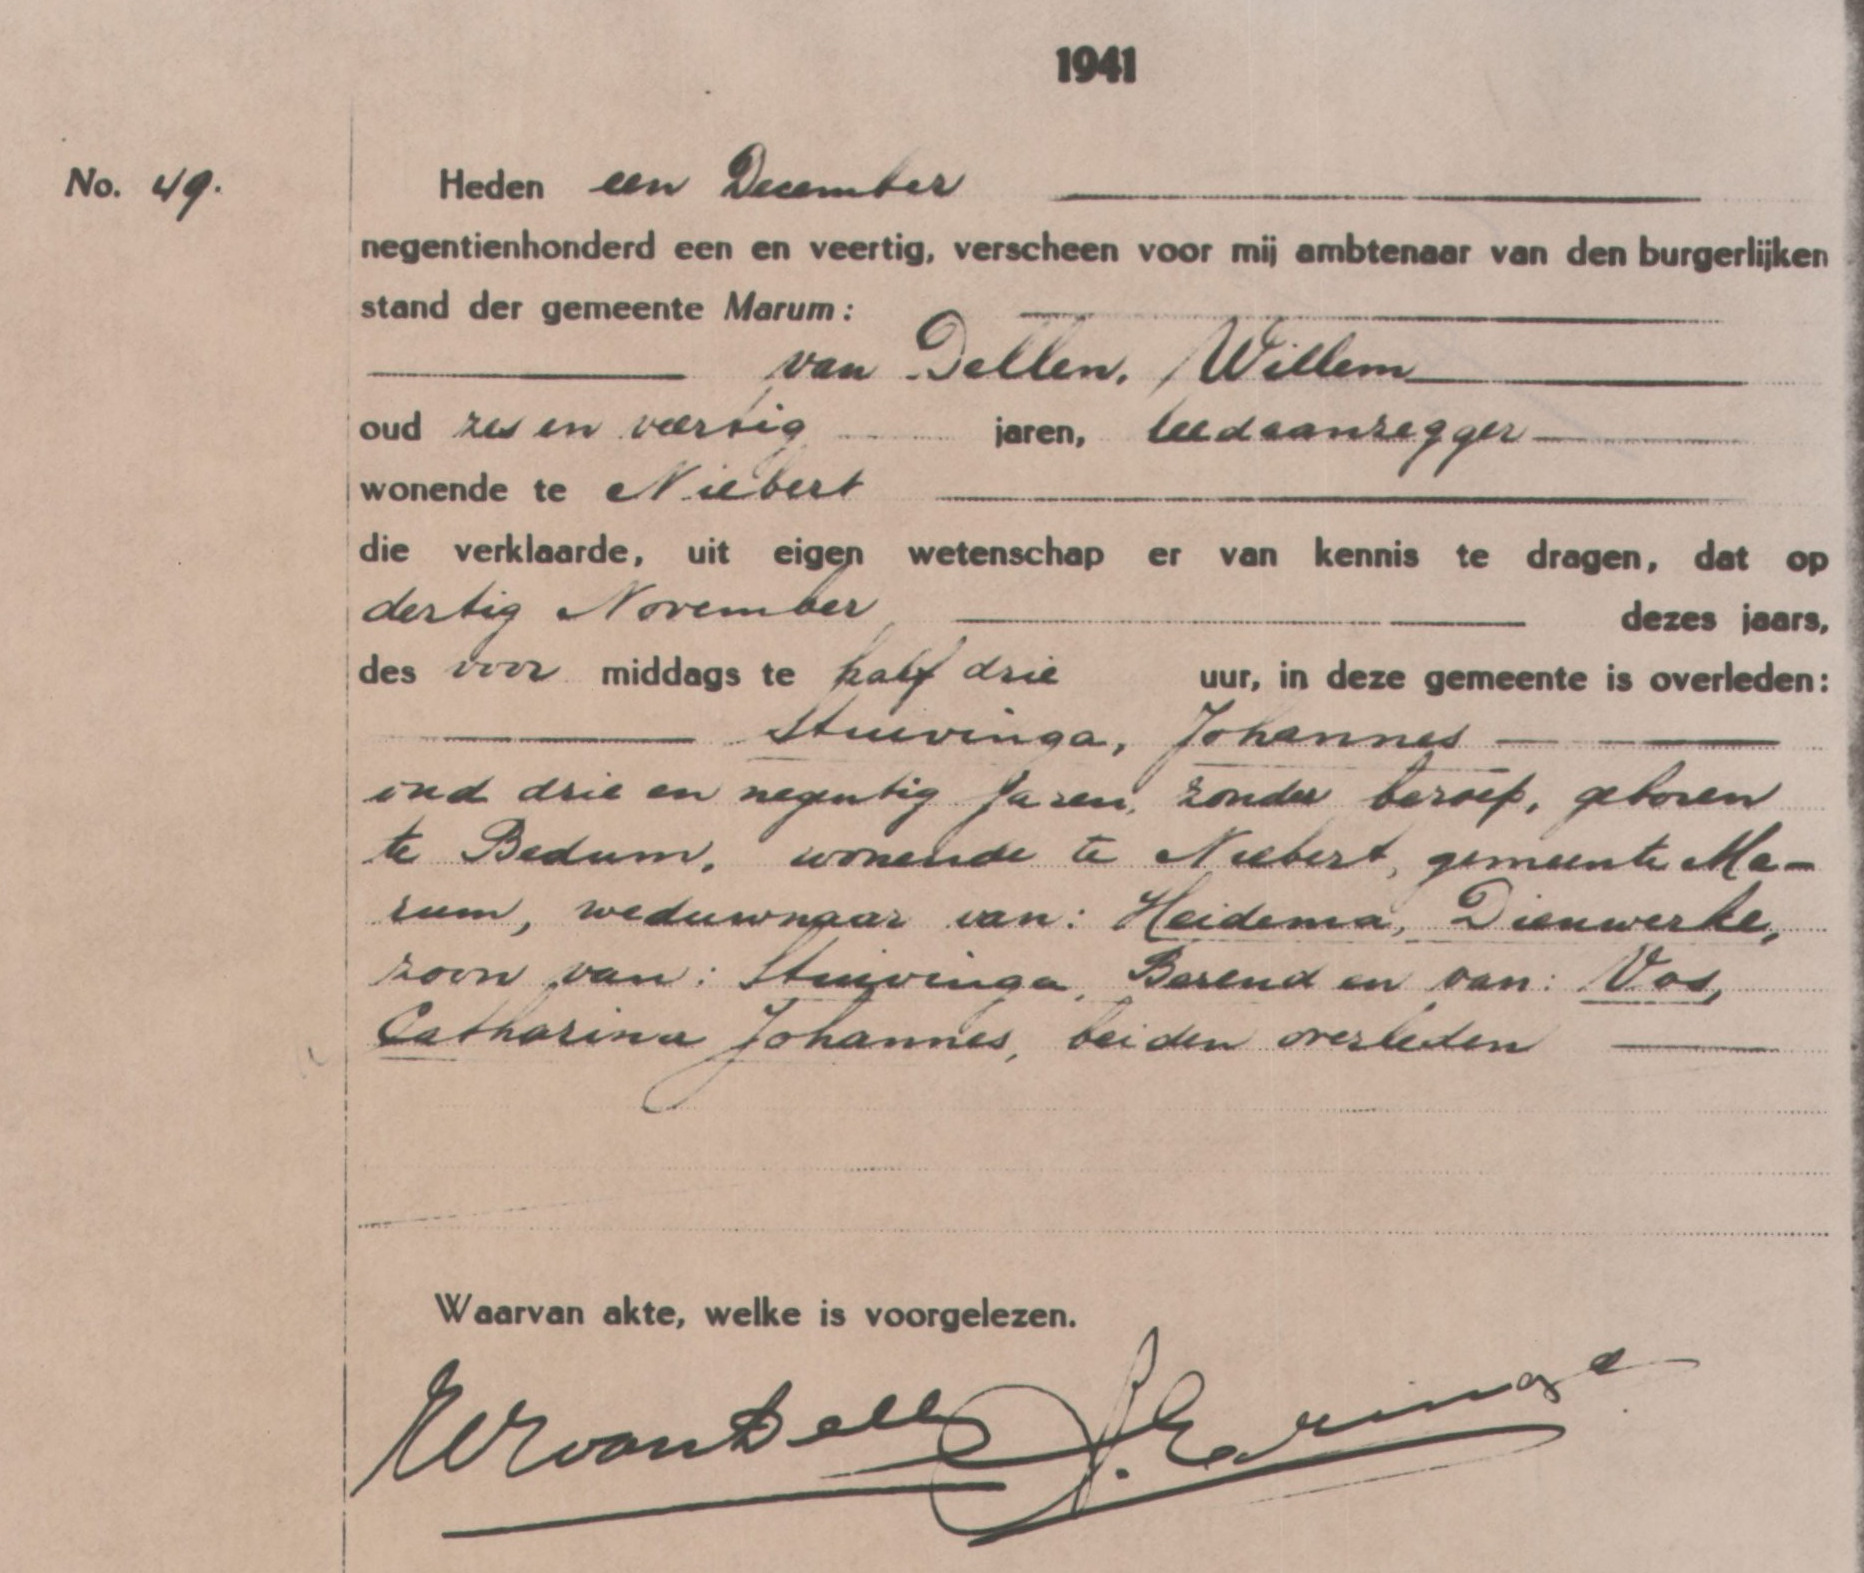 1941
No. 49.
Heden een December
negentienhonderd een en veertig, verscheen voor mij ambtenaar van den burgerlijken
stand der gemeente Marum:
van Dellen, Willem
oud zes en veertig jaren, leedaanzegger
wonende te Niebert
die verklaarde, uit eigen wetenschap er van kennis te dragen, dat op
dertig November dezes jaars,
des voor middags te half drie uur, in deze gemeente is overleden:
Stuivinga, Johannes
oud drie en negentig jaren, zonder beroep, geboren
te Bedum, wonende te Niebert, gemeente Ma-
rum, weduwnaar van: Heidema, Dieuwerke,
zoon van: Stuivinga, Berend en van: Vos,
Catharina Johannes, beiden overleden
Waarvan akte, welke is voorgelezen.